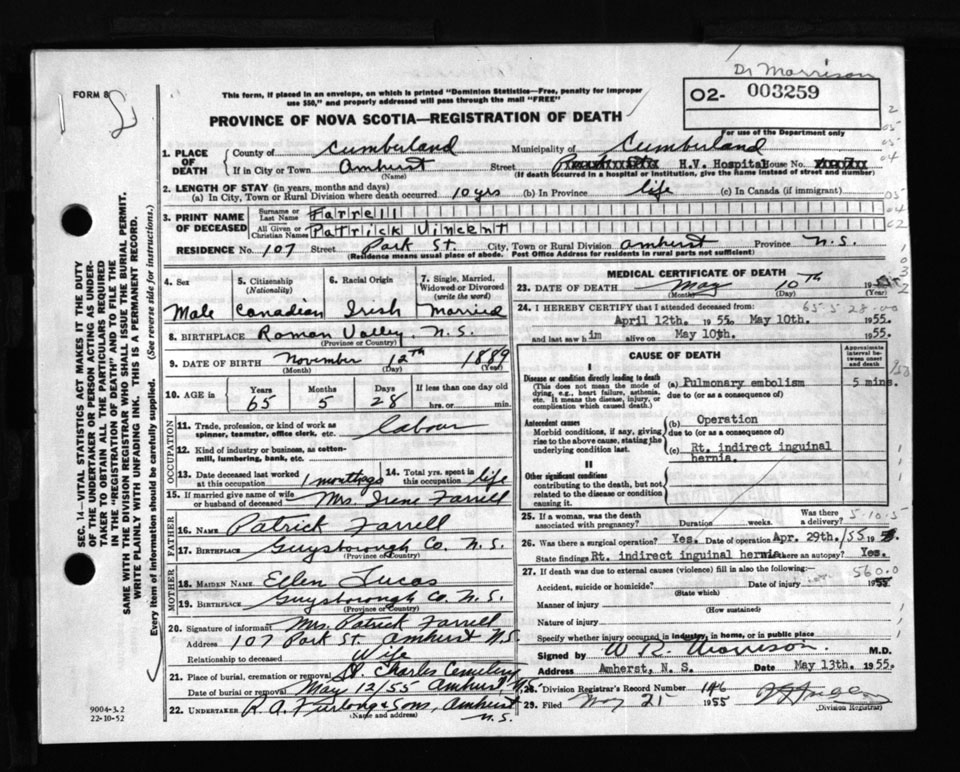 Dr Morrison
FORM 8
This form, if placed in an envelope, on which is printed "Dominion Statistics—Free, penalty for improper
use $50," and properly addressed will pass through the mail "FREE"
O2- 003259
PROVINCE OF NOVA SCOTIA—REGISTRATION OF DEATH
For use of the Department only
1. PLACE OF DEATH { County of Cumberland Municipality of Cumberland
If in City or Town Amhurst Street H.V. Hospital House No.
(Name) (If death occurred in a hospital or institution, give the name instead of street and number)
2. LENGTH OF STAY (in years, months and days)
(a) In City, Town or Rural Division where death occurred 10 yrs (b) In Province life (c) In Canada (if immigrant)
3. PRINT NAME OF DECEASED { Surname or Last Name Farrell
All Given or Christian Names Patrick Vincent
RESIDENCE No. 107 Street Park St. City, Town or Rural Division Amhurst Province N.S.
(Residence means usual place of abode. Post Office Address for residents in rural parts not sufficient)
4. Sex 5. Citizenship (Nationality) 6. Racial Origin 7. Single, Married, Widowed or Divorced (write the word)
Male Canadian Irish Married
8. BIRTHPLACE Roman Valley N.S.
(Province or Country)
9. DATE OF BIRTH November 12th 1889
(Month) (Day) (Year)
10. AGE in { Years 65 Months 5 Days 28 If less than one day old
hrs. or min.
OCCUPATION
11. Trade, profession, or kind of work as
spinner, teamster, office clerk, etc. labour
12. Kind of industry or business, as cotton-
mill, lumbering, bank, etc.
13. Date deceased last worked at this occupation 14. Total yrs. spent in this occupation life
15. If married give name of wife
or husband of deceased Mrs. Irene Farrell
FATHER
16. NAME Patrick Farrell
17. BIRTHPLACE Guysborough Co. N.S.
(Province or Country)
MOTHER
18. MAIDEN NAME Ellen Lucas
19. BIRTHPLACE Guysborough Co. N.S.
(Province or Country)
20. Signature of informant Mrs. Patrick Farrell
Address 107 Park St. Amhurst N.S.
Relationship to deceased Wife
21. Place of burial, cremation or removal St. Charles Cemetery
Date of burial or removal May 12/55 Amhurst, N.S.
22. UNDERTAKER R. A. Furlong & Sons, Amhurst
(Name and address) N.S.
MEDICAL CERTIFICATE OF DEATH
23. DATE OF DEATH May 10th 19
(Month) (Day) (Year)
24. I HEREBY CERTIFY that I attended deceased from:
April 12th. 1955. May 10th. 1955.
and last saw him alive on May 10th. 1955.
CAUSE OF DEATH
Approximate interval between onset and death
I
Disease or condition directly leading to death
(This does not mean the mode of
dying, e.g., heart failure, asthenia,
etc. It means the disease, injury, or
complication which caused death.)
(a) Pulmonary embolism 5 mins.
due to (or as a consequence of)
Antecedent causes
Morbid conditions, if any, giving
rise to the above cause, stating the
underlying condition last.
(b) Operation
due to (or as a consequence of)
(c) Rt. indirect inguinal
hernia.
II
Other significant conditions
contributing to the death, but not
related to the disease or condition
causing it.
25. If a woman, was the death
associated with pregnancy? Duration weeks. Was there a delivery?
5-10-5
26. Was there a surgical operation? Yes. Date of operation Apr. 29th./55 19
State findings Rt. indirect inguinal hernia Was there an autopsy? Yes.
27. If death was due to external causes (violence) fill in also the following:
560.0
Accident, suicide or homicide? Date of injury 1955.
(State which)
Manner of injury
(How sustained)
Nature of injury
Specify whether injury occurred in industry, in home, or in public place
Signed by W R Morrison M.D.
Address Amherst, N. S. Date May 13th. 1955.
28. Division Registrar's Record Number 146
29. Filed May 21 1955
(Division Registrar)
SEC. 14—VITAL STATISTICS ACT MAKES IT THE DUTY
OF THE UNDERTAKER OR PERSON ACTING AS UNDER-
TAKER TO OBTAIN ALL THE PARTICULARS REQUIRED
IN THE "REGISTRATION OF DEATH" AND TO FILE THE
SAME WITH THE DIVISION REGISTRAR WHO SHALL ISSUE THE BURIAL PERMIT.
WRITE PLAINLY WITH UNFADING INK. THIS IS A PERMANENT RECORD.
Every item of information should be carefully supplied. (See reverse side for instructions.)
9004-3.2
22-10-52